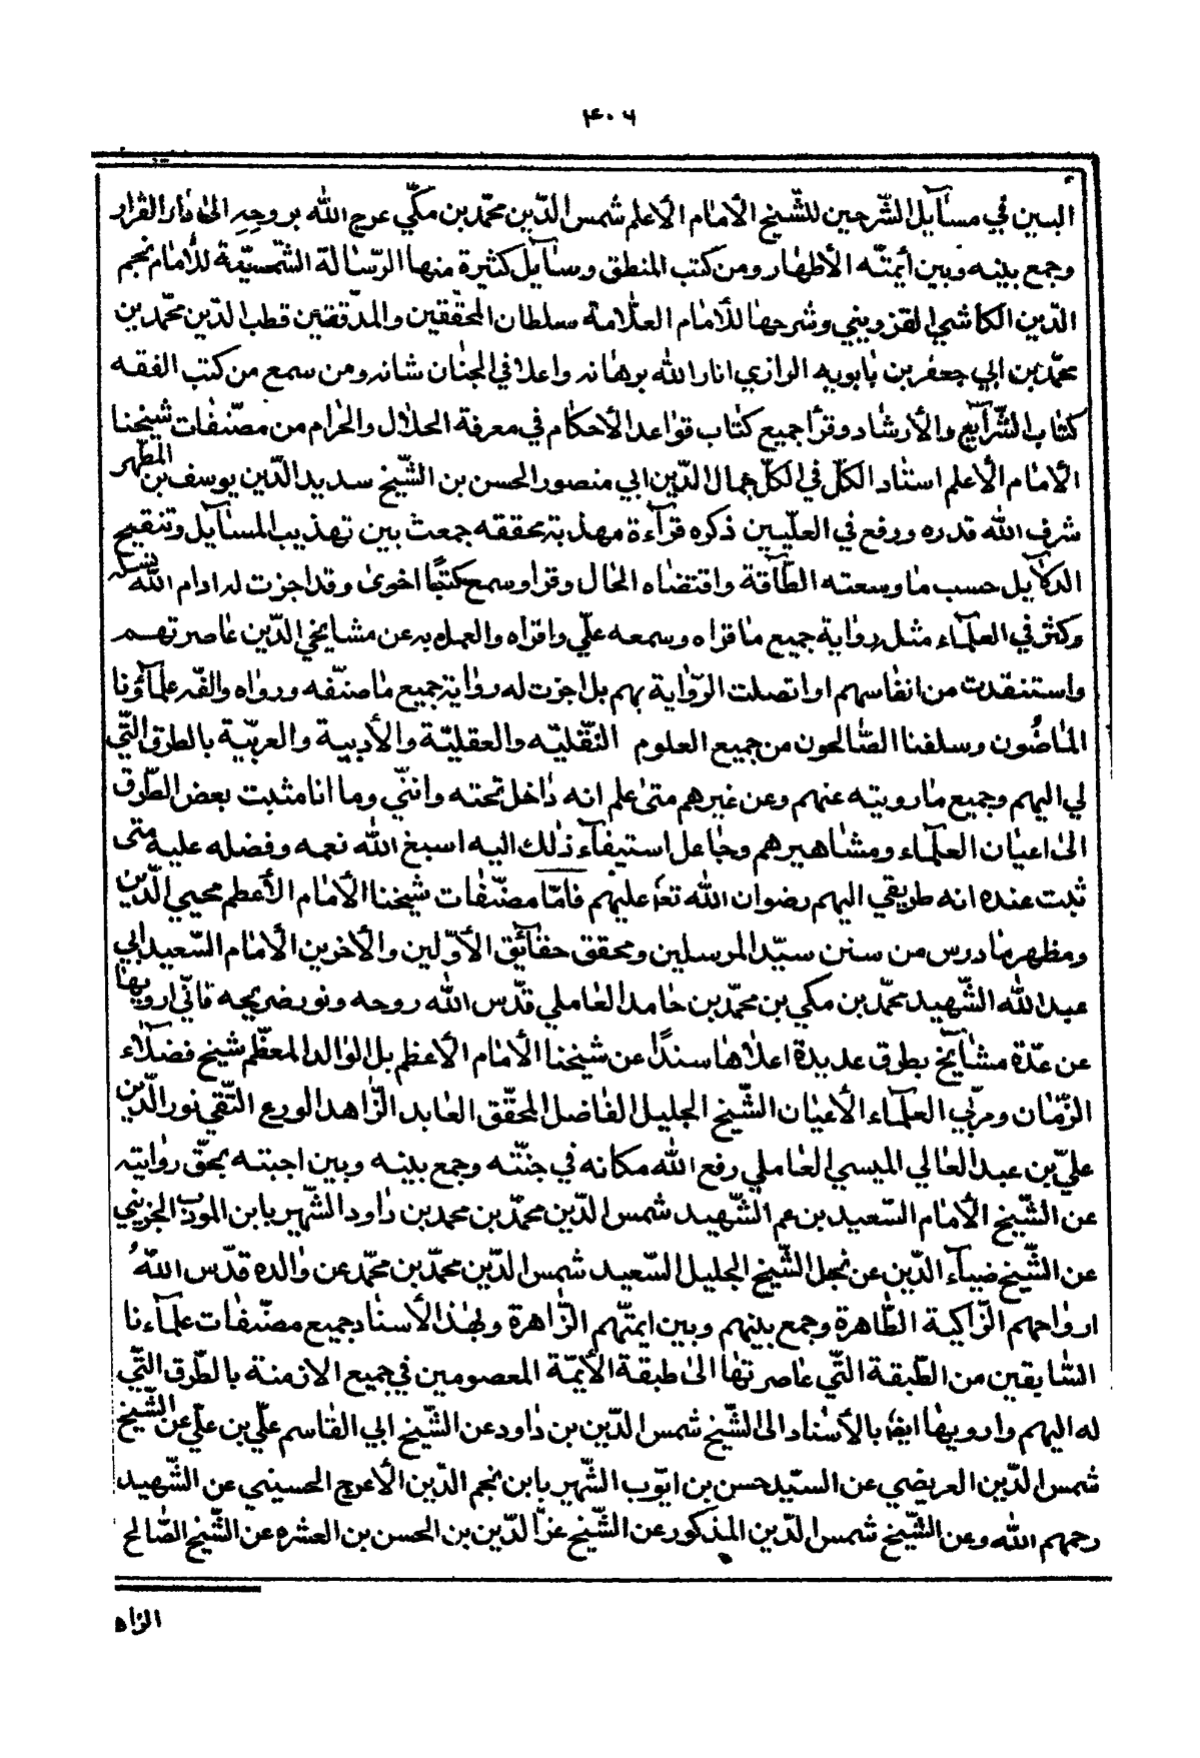 ٤٠٦
البين في مسآيل الشّرحين للشّيخ الأمام الأعلم شمس الدّين محمّد بن مكّي عرج الله بروحه الى دار القرار
وجمع بينه وبين أئمتّه الأطهار ومن كتب المنطق ورسآيل كثيرة منها الرّسالة الشّمسيّة للأمام نجم
الدّين الكاشي القزويني وشرحها للأمام العلّامة سلطان المحقّقين والمدّققين قطب الدّين محمّد بن
محمّد بن ابي جعفر بن بابويه الرازي انار الله برهانه واعلا في الجنان شانه ومن سمع من كتب الفقه
كتاب الشّرآيع والأرشاد وقرأ جميع كتاب قواعد الأحكام في معرفة الحلال والحرام من مصنّفات شيخنا
الأمام الأعلم استاد الكلّ في الكلّ جمال الدّين ابي منصور الحسن بن الشّيخ سديد الدّين يوسف بن المطهر
شرف الله قدره ورفع في العلّيين ذكره قرآءة مهذبة محققه جمعت بين تهذيب المسآيل وتنقيح
الدلآيل حسب ما وسعته الطّاقة واقتضاه الحال وقرا وسمع كتبًا اخرى وقد اجزت له ادام الله
وكثر في العلمآء مثله رواية جميع ما قراه وسمعه علّي واقراه والعمل به عن مشايخي الّذين عاصرتهم
واستنقدت من انفاسهم او اتصلت الرّواية بهم بل اجزت له رواية جميع ما صنّفه ورواه والفّه علمآؤنا
الماضُون وسلفنا الصّالحون من جميع العلوم النقليّه والعقليّة والأدبية والعربيّة بالطرق التّي
لي اليهم وجميع ما رويته عنهم وعن غيرهم متى علم انه داخل تحته وانّني وما انا مثبت بعض الطّرق
الى اعيان العلمآء ومشاهيرهم وجاعل استيفآء ذلك اليه اسبغ الله نعمه وفضله عليه متى
ثبت عنده انه طريقي اليهم رضوان الله تعا عليهم فامّا مصنّفات شيخنا الأمام الأعظم محيي الدّين
ومظهر ما درس من سنن سيّد المرسلين ومحقق حقآئق الأوّلين والأخرين الأمام السّعيد ابي
عبد الله الشّهيد محمّد بن مكي بن محمّد بن حامد العاملي قدّس الله روحه ونور ضريحه فانّي ارويها
عن عدّة مشآيخ بطرق عديدة اعلاها سندًا عن شيخنا الأمام الأعظم بل الوالد المعظّم شيخ فضلآء
الزّمان ومربّي العلمآء الأعيان الشّيخ الجليل الفاضل المحقّق العابد الزّاهد الورع التّقي نور الدّين
عليّ بن عبد العالي الميسي العاملي رفع الله مكانه في جنّته وجمع بينه وبين احبته بحقّ روايته
عن الشّيخ الأمام السّعيد بن عم الشّهيد شمس الدّين محمّد بن محمد بن داود الشّهير بابن الموذّن الجزيني
عن الشّيخ ضيآء الدّين عن نجل الشّيخ الجليل السّعيد شمس الدّين محمّد بن محمّد عن والده قدّس اللّهُ
ارواحهم الزّاكية الطّاهرة وجمع بينهم وبين ائمّتهم الزّاهرة ولهذا الأسناد جميع مصنّفات علمآءنا
السّابقين من الطّبقة التّي عاصرتها الى طبقة الأئمّة المعصومين في جميع الازمنة بالطّرق التّي
له اليهم وارويها ايضا بالأسناد الى الشّيخ شمس الدّين بن داود عن الشّيخ ابي القاسم علّي بن علّي عن الشّيخ
شمس الدّين العريضي عن السيّد حسن بن ايّوب الشّهير بابن نجم الدّين الأعرج الحسيني عن الشّهيد
رحمهم الله وعن الشّيخ شمس الدّين المذكور عن الشّيخ عزّ الدّين بن الحسن بن العشره عن الشّيخ الصّالح
الزاه